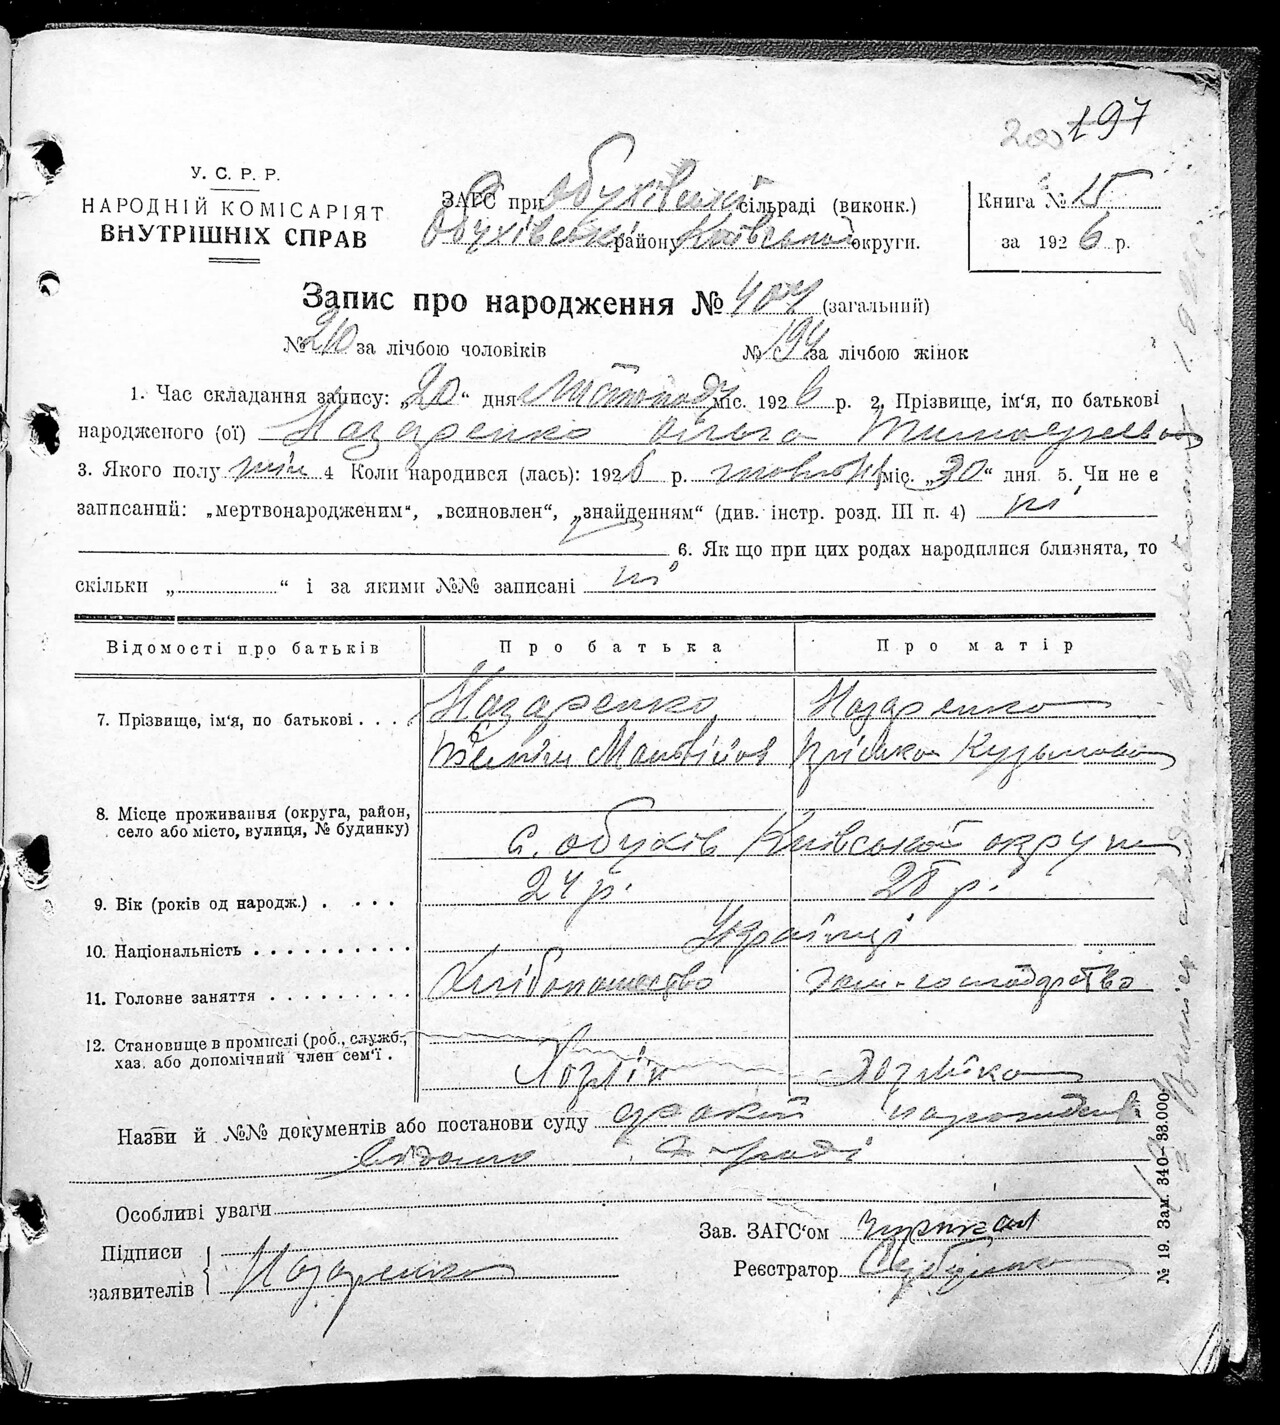 200 197
У. С. Р. Р.
НАРОДНІЙ КОМІСАРІЯТ
ВНУТРІШНІХ СПРАВ
ЗАГС при Обухівській сільраді (виконк.)
Обухівськ району Київської округи.
Книга № 15
за 1926 р.
Запис про народження № 404 (загальний)
№ 210 за лічбою чоловіків № 194 за лічбою жінок
1. Час складання запису: „20“ дня Листопаду міс. 1926 р. 2. Прізвище, ім'я, по батькові
народженого (ої) Назаренко Ольга
3. Якого полу жін 4 Коли народився (лась): 1926 р. жовтня міс. „30“ дня. 5. Чи не є
записаний: „мертвонародженим“, „всиновлен“, „знайденням“ (див. інстр. розд. III п. 4) ні
6. Як що при цих родах народилися близнята, то
скільки „ “ і за якими №№ записані ні
Відомості про батьків Про батька Про матір
7. Прізвище, ім'я, по батькові . . . Назаренко Назаренко
Матвійов Пріська Кузьмовна
8. Місце проживання (округа, район,
село або місто, вулиця, № будинку)
с. Обухів Київської округи
9. Вік (років од народж.) . . . . 24 р. 25 р.
10. Національність . . . . . . . . . . Українці
11. Головне заняття . . . . . . . . . Хлібопашество дом-господарство
12. Становище в промислі (роб., служб.,
хаз. або допомічний член сем'ї .
Хозяїн Хозяйка
Назви й №№ документів або постанови суду
відомо
Особливі уваги
Підписи
заявителів
Назаренко
Зав. ЗАГС'ом
Реєстратор
№ 19. Зам. 340—33.000